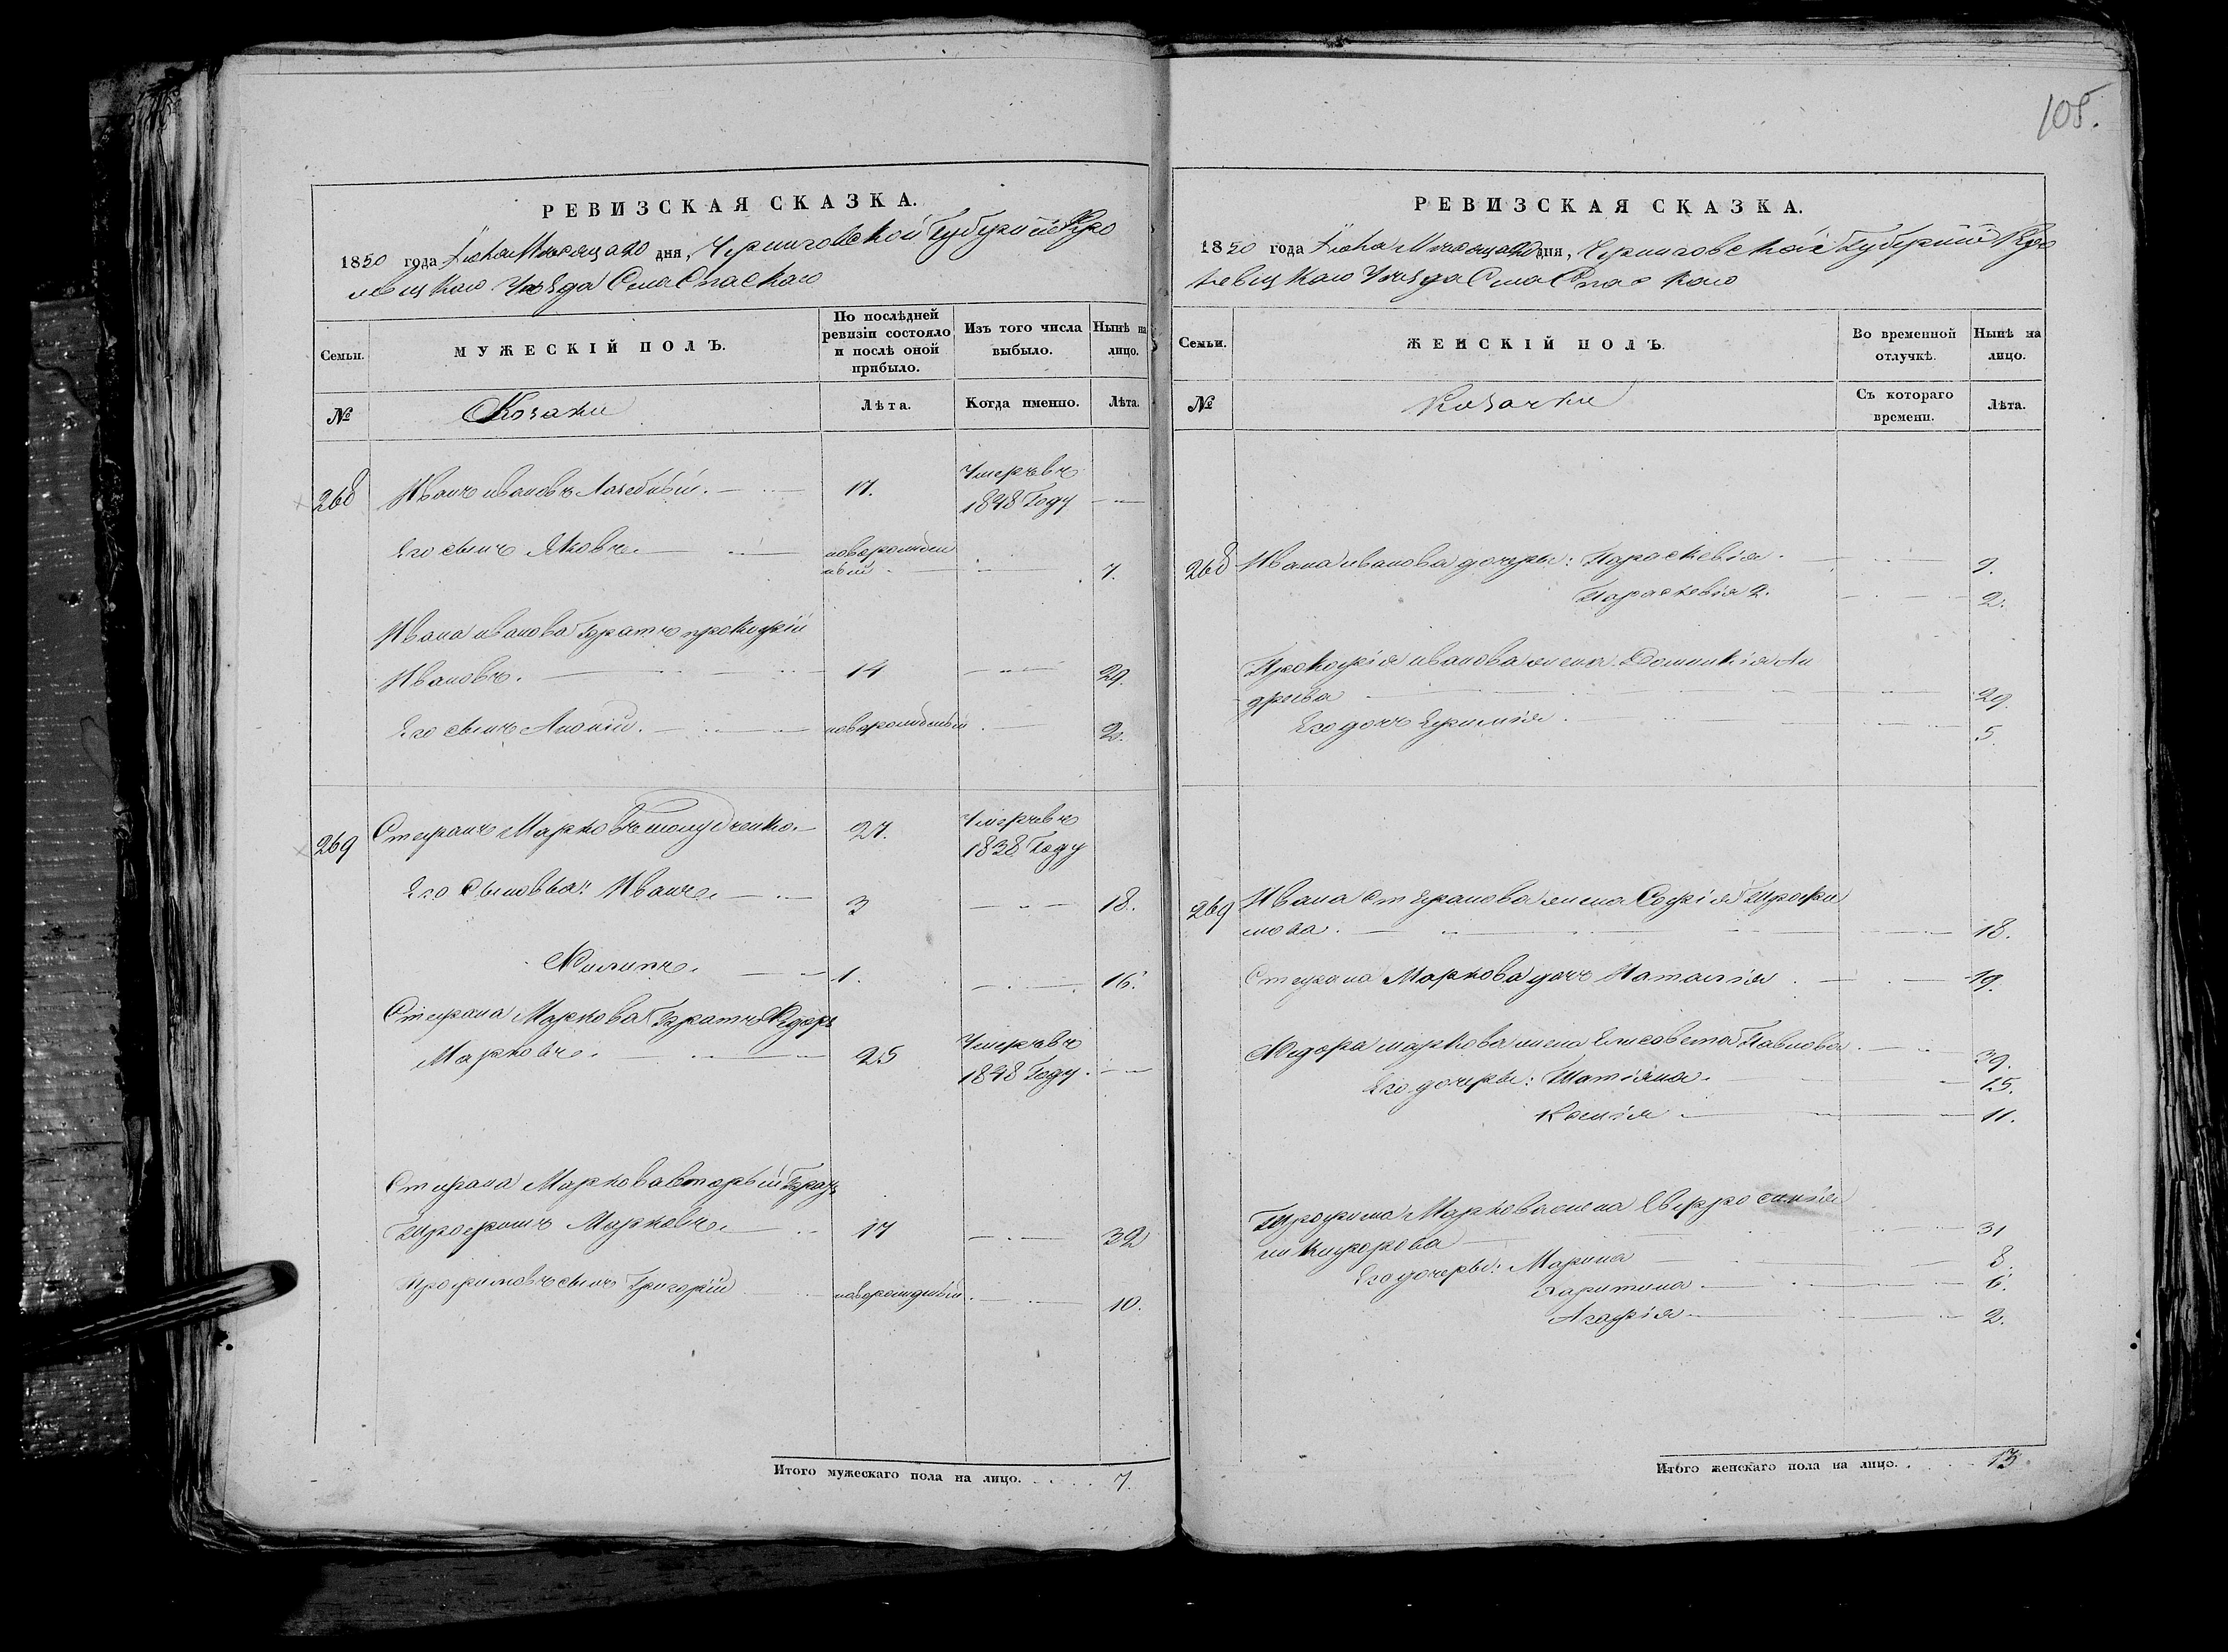 105.
РЕВИЗСКАЯ СКАЗКА.
1850 года Июна Месяца 20 дня, Черниговской Губерніи Кро
левецкаго Уезда Села Спаскаго
Семьи. МУЖЕСКІЙ ПОЛЪ. По послѣдней ревизіи состояло и послѣ оной прибыло. Изъ того числа выбыло. Нынѣ на лицо.
№ Козаки Лѣта. Когда именно. Лѣта.
268 Иванъ ивановъ 17. Умеръ въ 1848 Году
Его сынъ Яковъ. новорожден ный 7.
Ивана иванова Братъ прокофій
Ивановъ. 14 29.
Его сынъ новорожденый 2.
269 Стефанъ Марковъ 27. Умеръ въ 1838 Году
Его Сыновья: Иванъ 3 18.
Филипъ. 1. 16.
Стефана Маркова Братъ Федоръ
Марковъ. 25 Умеръ въ 1848 Году.
Стефана Маркова вторый Братъ
Трофимъ Марковъ. 17 32
Трофимовъ сынъ Григорій новорожденый 10.
Итого мужескаго пола на лицо. 7.
РЕВИЗСКАЯ СКАЗКА.
1850 года Июна Месяца 20 дня, Черниговской Губерніи Кро
левецкаго Уезда Села Спаскаго
Семьи. ЖЕНСКІЙ ПОЛЪ. Во временной отлучкѣ. Нынѣ на лицо.
№ Козачки Съ котораго времени. Лѣта.
268 Ивана иванова дочери: Параскевія. 9.
Параскевія 2. 2.
Прокофія иванова жена Домникія Ан
дреева 29.
Его дочь 5.
269 Ивана Стефанова жена Софія Трофи
мова. 18.
Стефана Маркова дочь Наталія 19.
Федора маркова жена Елисовета Павлова. 39.
Его дочери: Татіяна. 15.
Ксенія 11.
Трофима Маркова жена Евфросинія
никифорова 31
Его дочери: Марина 8.
Харитина 6.
Агафія 2.
Итого женскаго пола на лицо. 13